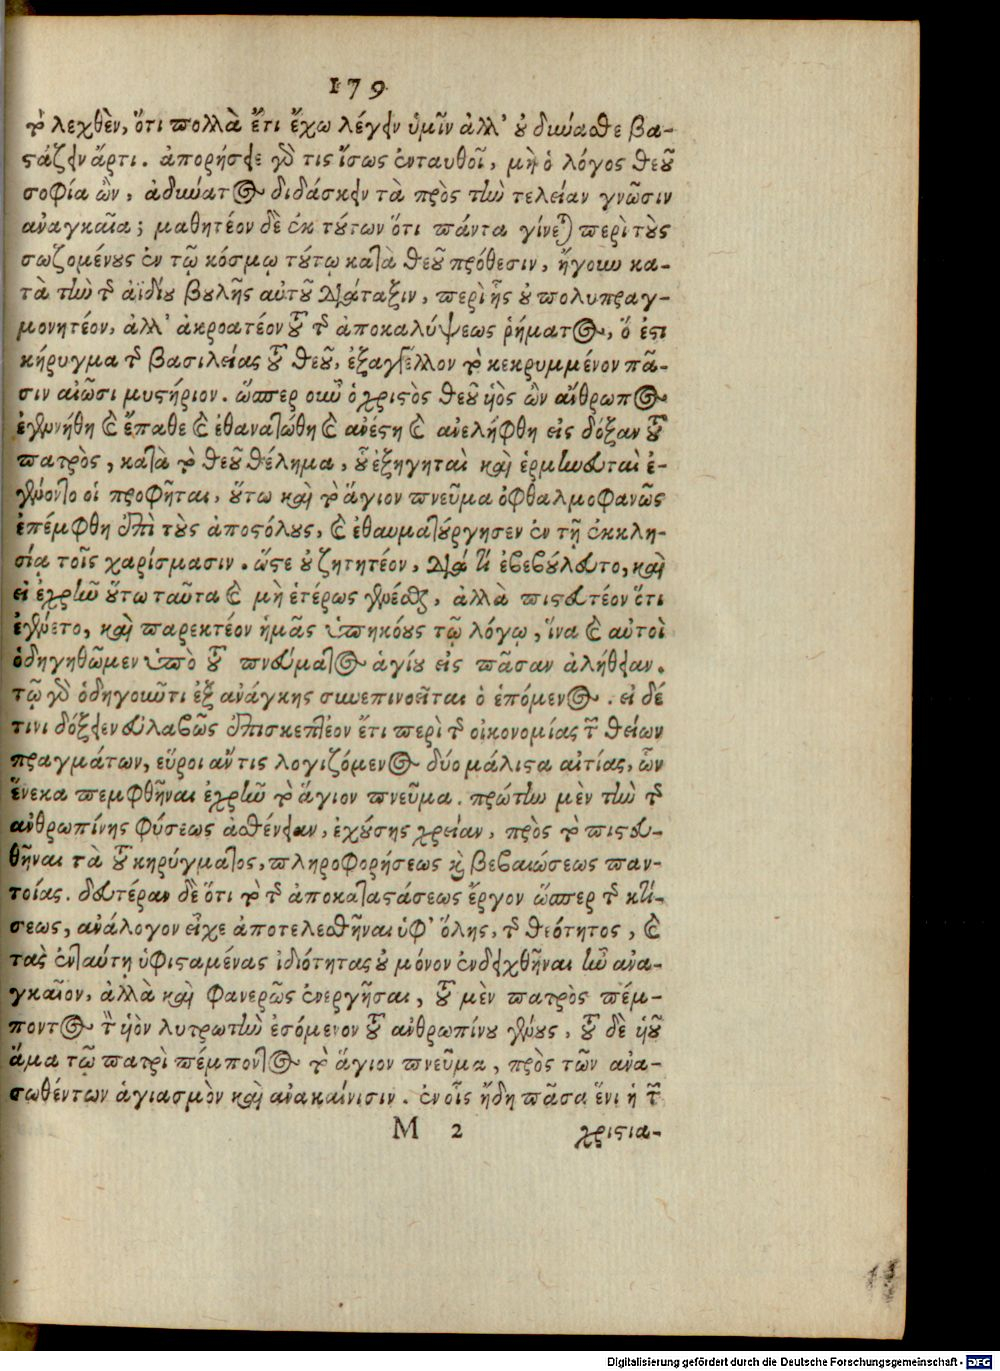 179
τὸ λεχθὲν, ὅτι πολλὰ ἔτι ἔχω λέγειν ὑμῖν ἀλλ' οὐ δύνασθε βα-
στάζειν ἄρτι. ἀπορήσειε γὰρ τις ἴσως ἐνταυθοῖ, μὴ ὁ λόγος θεοῦ
σοφία ὢν, ἀδύνατος διδάσκειν τὰ πρὸς τὴν τελείαν γνῶσιν
ἀναγκαῖα; μαθητέον δὲ ἐκ τούτων ὅτι πάντα γίνεται περὶ τοὺς
σωζομένους ἐν τῷ κόσμῳ τούτῳ κατὰ θεοῦ πρόθεσιν, ἤγουν κα-
τὰ τὴν τῆς ἀϊδίου βουλῆς αὐτοῦ διάταξιν, περὶ ἧς οὐ πολυπραγ-
μονητέον, ἀλλ' ἀκροατέον τοῦ τῆς ἀποκαλύψεως ῥήματος, ὅ ἐστι
κήρυγμα τῆς βασιλείας τοῦ θεοῦ, ἐξαγγέλλον τὸ κεκρυμμένον πᾶ-
σιν αἰῶσι μυστήριον. ὥσπερ οὖν ὁ χριστὸς θεοῦ υἱὸς ὢν ἄνθρωπος
ἐγεννήθη καὶ ἔπαθε καὶ ἐθανατώθη καὶ ἀνέστη καὶ ἀνελήφθη εἰς δόξαν τοῦ
πατρὸς, κατὰ τὸ θεοῦ θέλημα, οὗ ἐξηγηταὶ καὶ ἑρμηνευταὶ ἐ-
γένοντο οἱ προφῆται, οὕτω καὶ τὸ ἅγιον πνεῦμα ὀφθαλμοφανῶς
ἐπέμφθη ἐπὶ τοὺς ἀποστόλους, καὶ ἐθαυματούργησεν ἐν τῇ ἐκκλη-
σίᾳ τοῖς χαρίσμασιν. ὥστε οὐ ζητητέον, διά τι ἐβεβούλευτο, καὶ
εἰ ἐχρῆν οὕτω ταῦτα καὶ μὴ ἑτέρως γενέσθαι, ἀλλὰ πιστευτέον ὅτι
ἐγένετο, καὶ παρεκτέον ἡμᾶς ὑπηκόους τῷ λόγῳ, ἵνα καὶ αὐτοὶ
ὁδηγηθῶμεν ὑπὸ τοῦ πνεύματος ἁγίου εἰς πᾶσαν ἀλήθειαν.
τῷ γὰρ ὁδηγοῦντι ἐξ ἀνάγκης συνεπινοεῖται ὁ ἑπόμενος. εἰ δέ
τινι δόξειεν εὐλαβῶς ἐπισκεπτέον ἔτι περὶ τῆς οἰκονομίας τῶν θείων
πραγμάτων, εὕροι ἄν τις λογιζόμενος δύο μάλιστα αἰτίας, ὧν
ἕνεκα πεμφθῆναι ἐχρῆν τὸ ἅγιον πνεῦμα. πρώτην μὲν τὴν τῆς
ἀνθρωπίνης φύσεως ἀσθένειαν, ἐχούσης χρείαν, πρὸς τὸ πιστευ-
θῆναι τὰ τοῦ κηρύγματος, πληροφορήσεως καὶ βεβαιώσεως παν-
τοίας. δευτέραν δὲ ὅτι τὸ τῆς ἀποκαταστάσεως ἔργον ὥσπερ τῆς κτί-
σεως, ἀνάλογον εἶχε ἀποτελεσθῆναι ὑφ' ὅλης, τῆς θεότητος, καὶ
τὰς ἐν ταύτῃ ὑφισταμένας ἰδιότητας οὐ μόνον ἐνδειχθῆναι ἦν ἀνα-
γκαῖον, ἀλλὰ καὶ φανερῶς ἐνεργῆσαι, τοῦ μὲν πατρὸς πέμ-
ποντος τὸν υἱὸν λυτρωτὴν ἐσόμενον τοῦ ἀνθρωπίνου γένους, τοῦ δὲ υἱοῦ
ἅμα τῷ πατρὶ πέμποντος τὸ ἅγιον πνεῦμα, πρὸς τῶν ἀνα-
σωθέντων ἁγιασμὸν καὶ ἀνακαίνισιν. ἐν οἷς ἤδη πᾶσα ἔνι ἡ τῶν
M 2 χριστια-
Digitalisierung gefördert durch die Deutsche Forschungsgemeinschaft - DFG